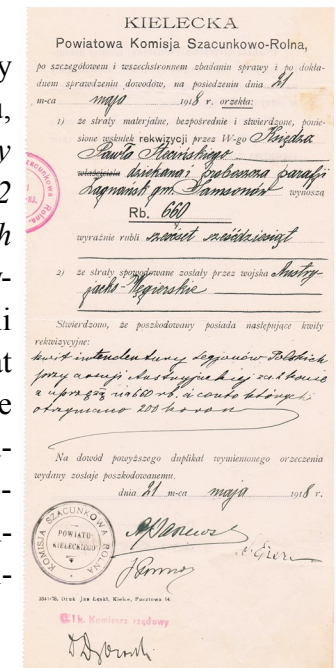 KIELECKA
Powiatowa Komisja Szacunkowo-Rolna,
po szczegółowem i wszechstronnem zbadaniu sprawy i po dokła-
dnem sprawdzeniu dowodów, na posiedzeniu dnia 21
m-ca maja 1918 r. orzekła:
1) że straty materjalne, bezpośrednie i stwierdzone, ponie-
sione wskutek rekwizycji przez W-go Księdza
Pawła
właściciela dziekana i proboszcza parafji
Zagnańsk gm. Samsonów wynoszą
Rb. 660
wyraźnie rubli sześćset sześćdziesiąt
2) że straty spowodowane zostały przez wojska Austry-
jacko-Węgierskie
Stwierdzono, że poszkodowany posiada następujące kwity
rekwizycyjne:
kwit intendentury Legjonów Polskich
przy armji Austryjackiej za
z uprzężą na 660 rb. a conto których
otrzymano 200 koron
Na dowód powyższego duplikat wymienionego orzeczenia
wydany zostaje poszkodowanemu.
dnia 21 m-ca maja 1918 r.
KOMISJA SZACUNKOWA ROLNA
POWIATU
KIELECKIEGO
Druk Jan Łęski, Kielce, Pocztowa 14.
C. i k. Komisarz rządowy
y
,
y
2
h
y-
i
at
e
-
-
-
-